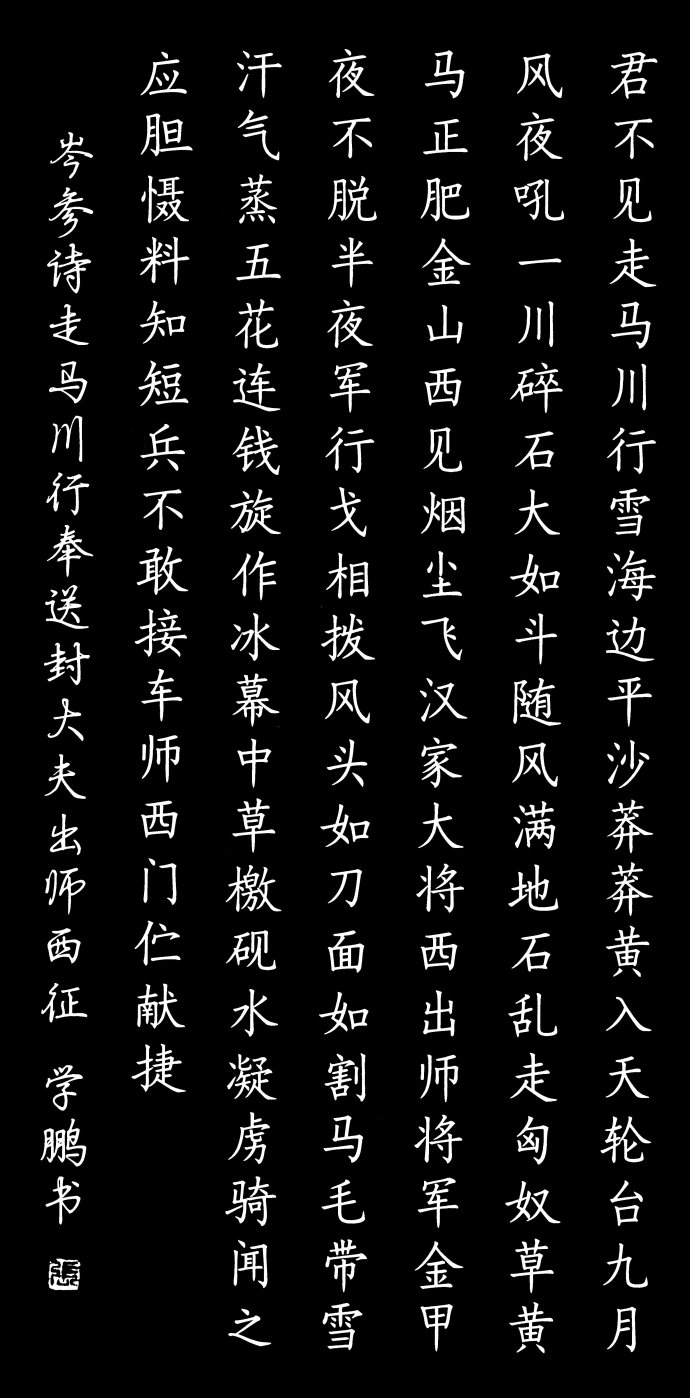 君不见走马川行雪海边平沙莽莽黄入天轮台九月
风夜吼一川碎石大如斗随风满地石乱走匈奴草黄
马正肥金山西见烟尘飞汉家大将西出师将军金甲
夜不脱半夜军行戈相拨风头如刀面如割马毛带雪
汗气蒸五花连钱旋作冰幕中草檄砚水凝虏骑闻之
应胆慑料知短兵不敢接车师西门伫献捷
岑参诗走马川行奉送封大夫出师西征 学鹏书